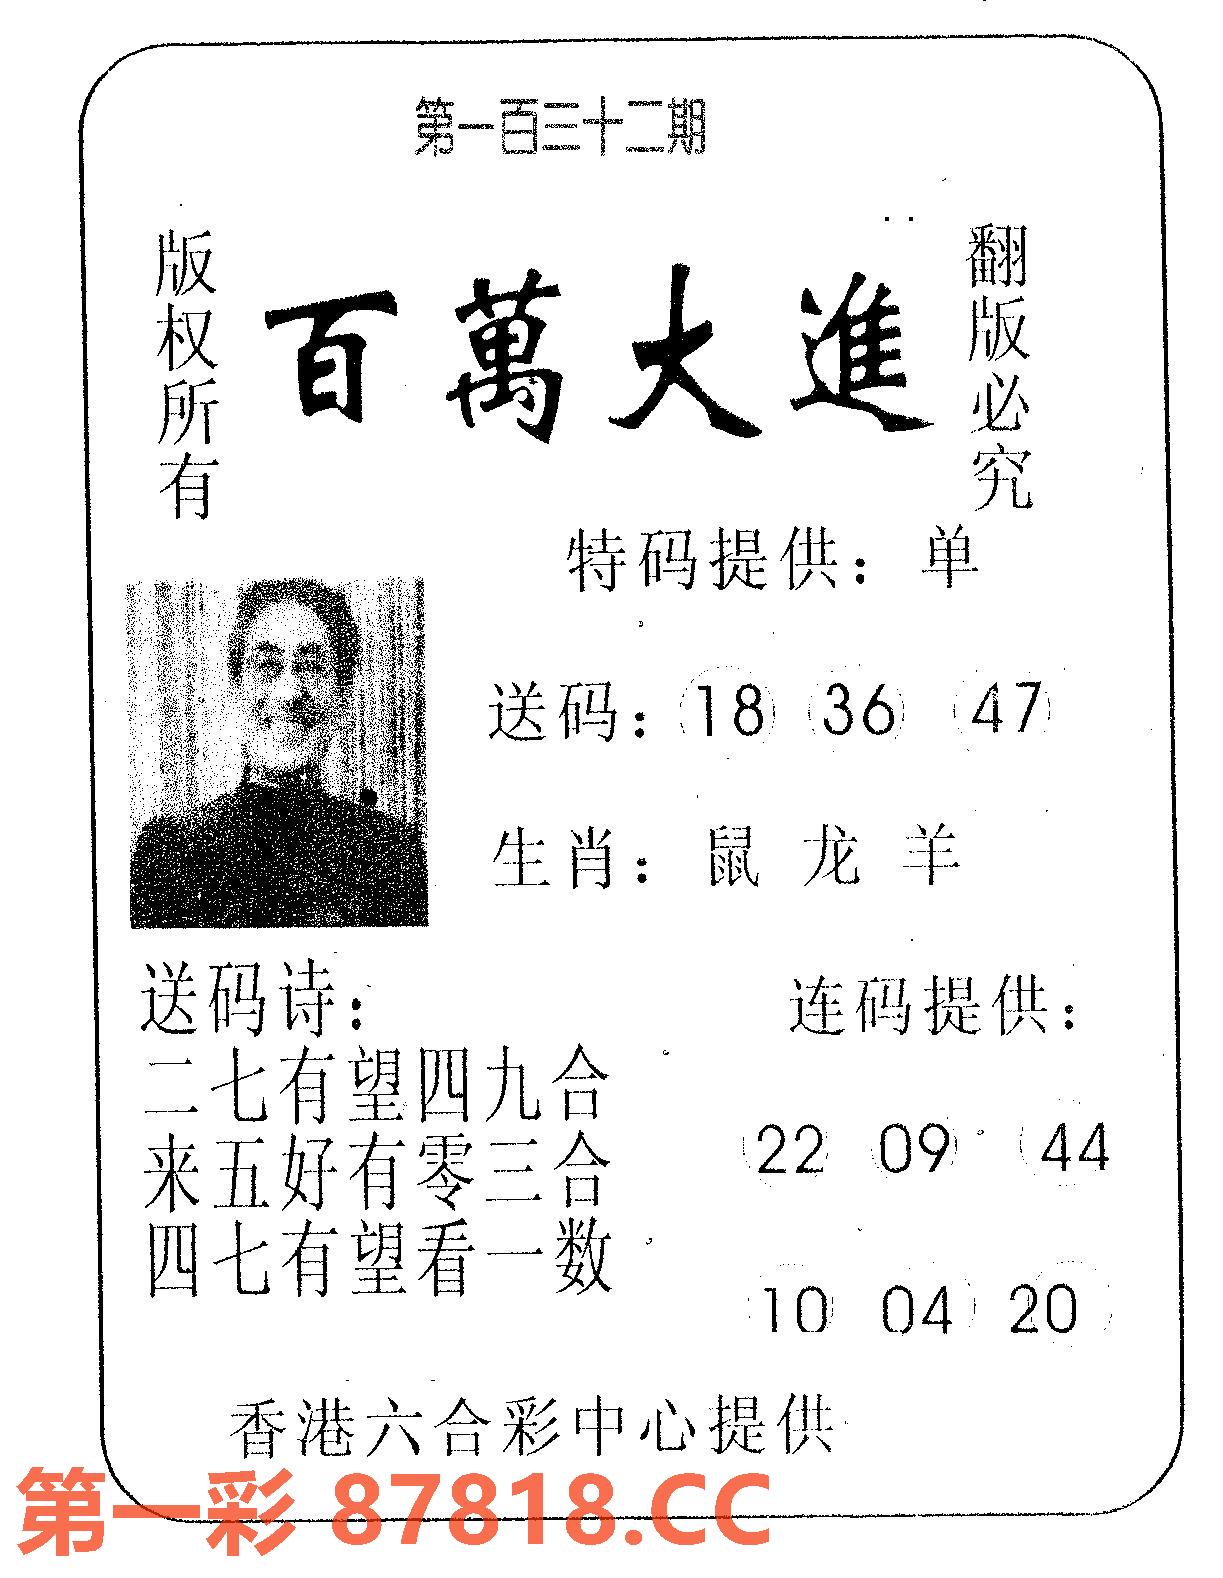 第一百三十二期
版权所有
百萬大進
翻版必究
特码提供：单
送码：18 36 47
生肖：鼠 龙 羊
送码诗：
二七有望四九合
来五好有零三合
四七有望看一数
连码提供：
22 09 44
10 04 20
香港六合彩中心提供
第一彩 87818.CC